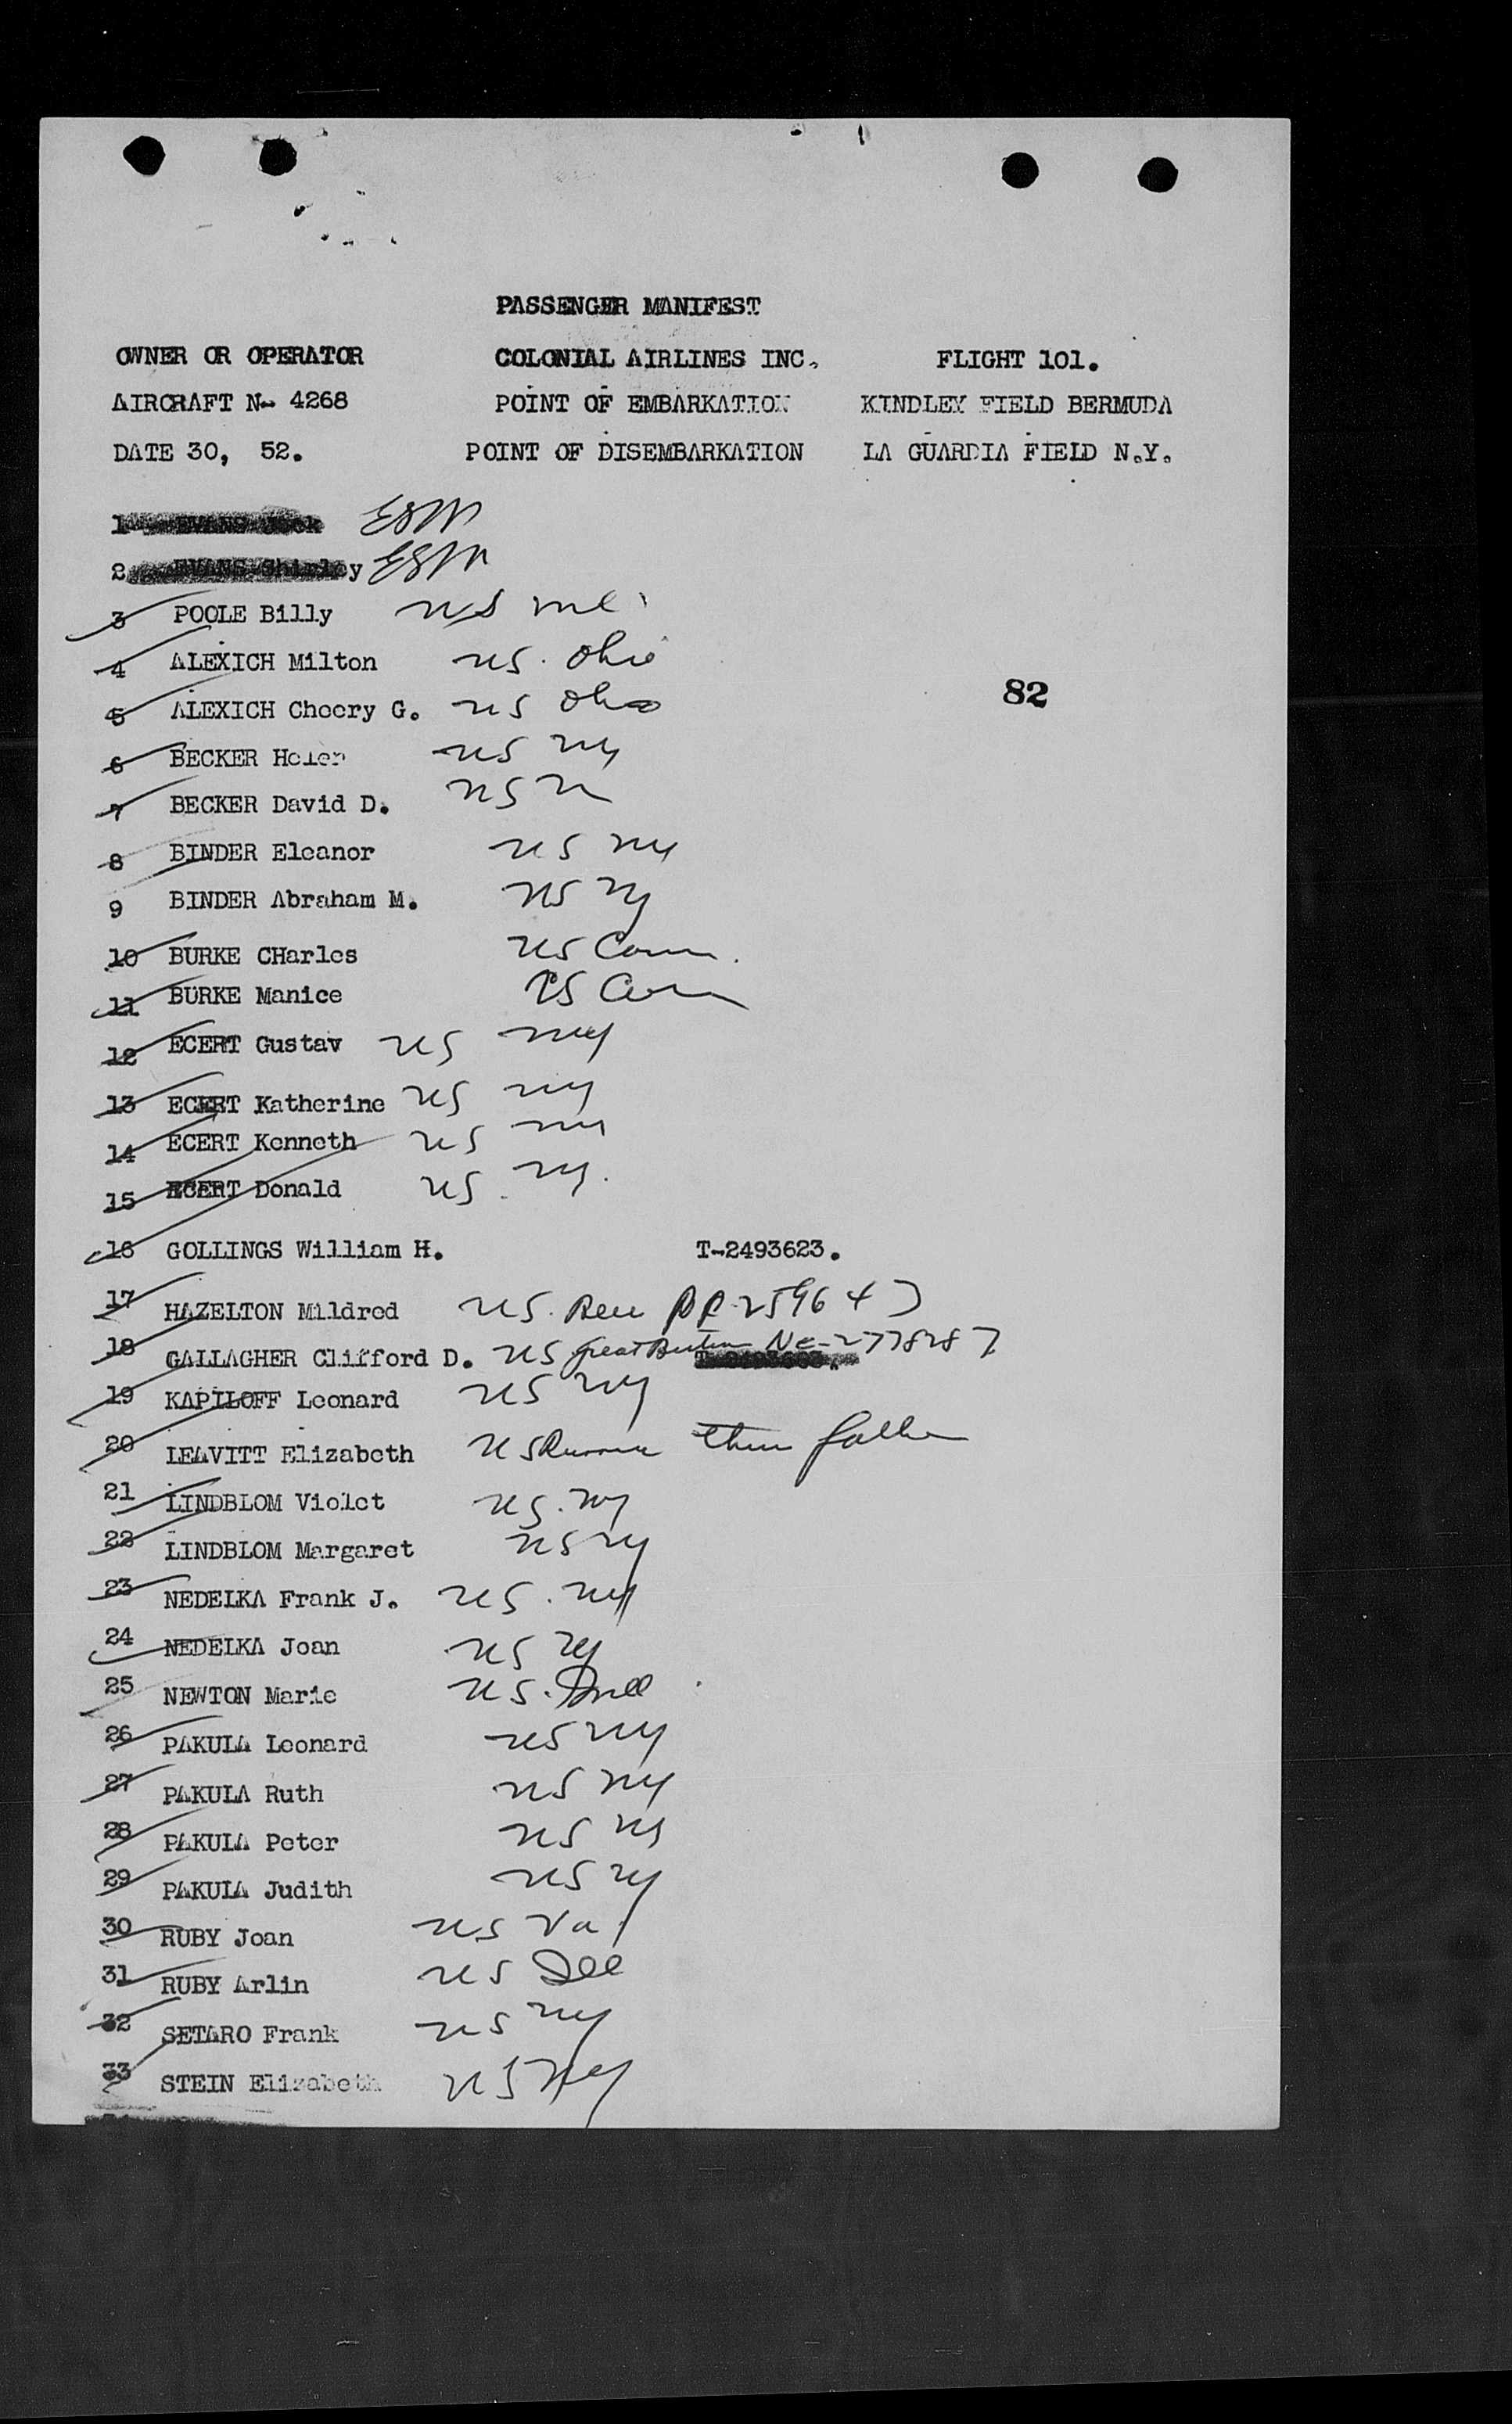 PASSENGER MANIFEST
OWNER OR OPERATOR COLONIAL AIRLINES INC. FLIGHT 101.
AIRCRAFT N- 4268 POINT OF EMBARKATION KINDLEY FIELD BERMUDA
DATE 30, 52. POINT OF DISEMBARKATION LA GUARDIA FIELD N.Y.
1 EVANS ESM
2 EVANS Shirley ESM
3 POOLE Billy US
4 ALEXICH Milton US. Ohio
82
5 ALEXICH Cheery G. US Ohio
6 BECKER Helen US NY
7 BECKER David D. US
8 BINDER Eleanor US NY
9 BINDER Abraham M. US NY
10 BURKE CHarles US Conn.
11 BURKE Manice US Conn
12 ECERT Gustav US NY
13 ECERT Katherine US NY
14 ECERT Kenneth US NY
15 ECERT Donald US. NY.
16 GOLLINGS William H. T-2493623.
17 HAZELTON Mildred US.
18 GALLAGHER Clifford D. US Great Britain
19 KAPILOFF Leonard US NY
20 LEAVITT Elizabeth US Russia thru father
21 LINDBLOM Violet US. NY
22 LINDBLOM Margaret US NY
23 NEDELKA Frank J. US. NY
24 NEDELKA Joan US NY
25 NEWTON Marie US.
26 PAKULA Leonard US NY
27 PAKULA Ruth US NY
28 PAKULA Peter US NY
29 PAKULA Judith US NY
30 RUBY Joan US Va.
31 RUBY Arlin US Ill
32 SETARO Frank US NY
33 STEIN Elizabeth US NY